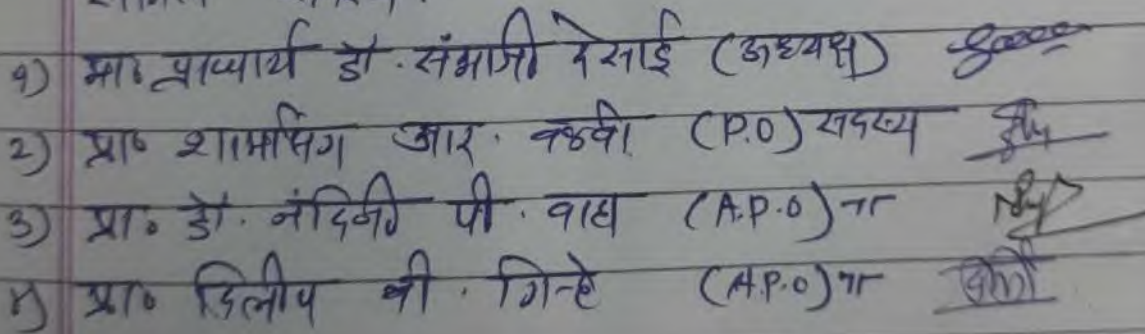 १) मा॰ प्राचार्य डॉ. संभाजी देसाई (अध्यक्ष)
२) प्रा॰ शामसिंग आर. वळवी (P.O) सदस्य
३) प्रा. डॉ. नंदिनी पी. वाघ (A.P.O) "
४) प्रा॰ दिलीप बी. गिऱ्हे (A.P.O) "